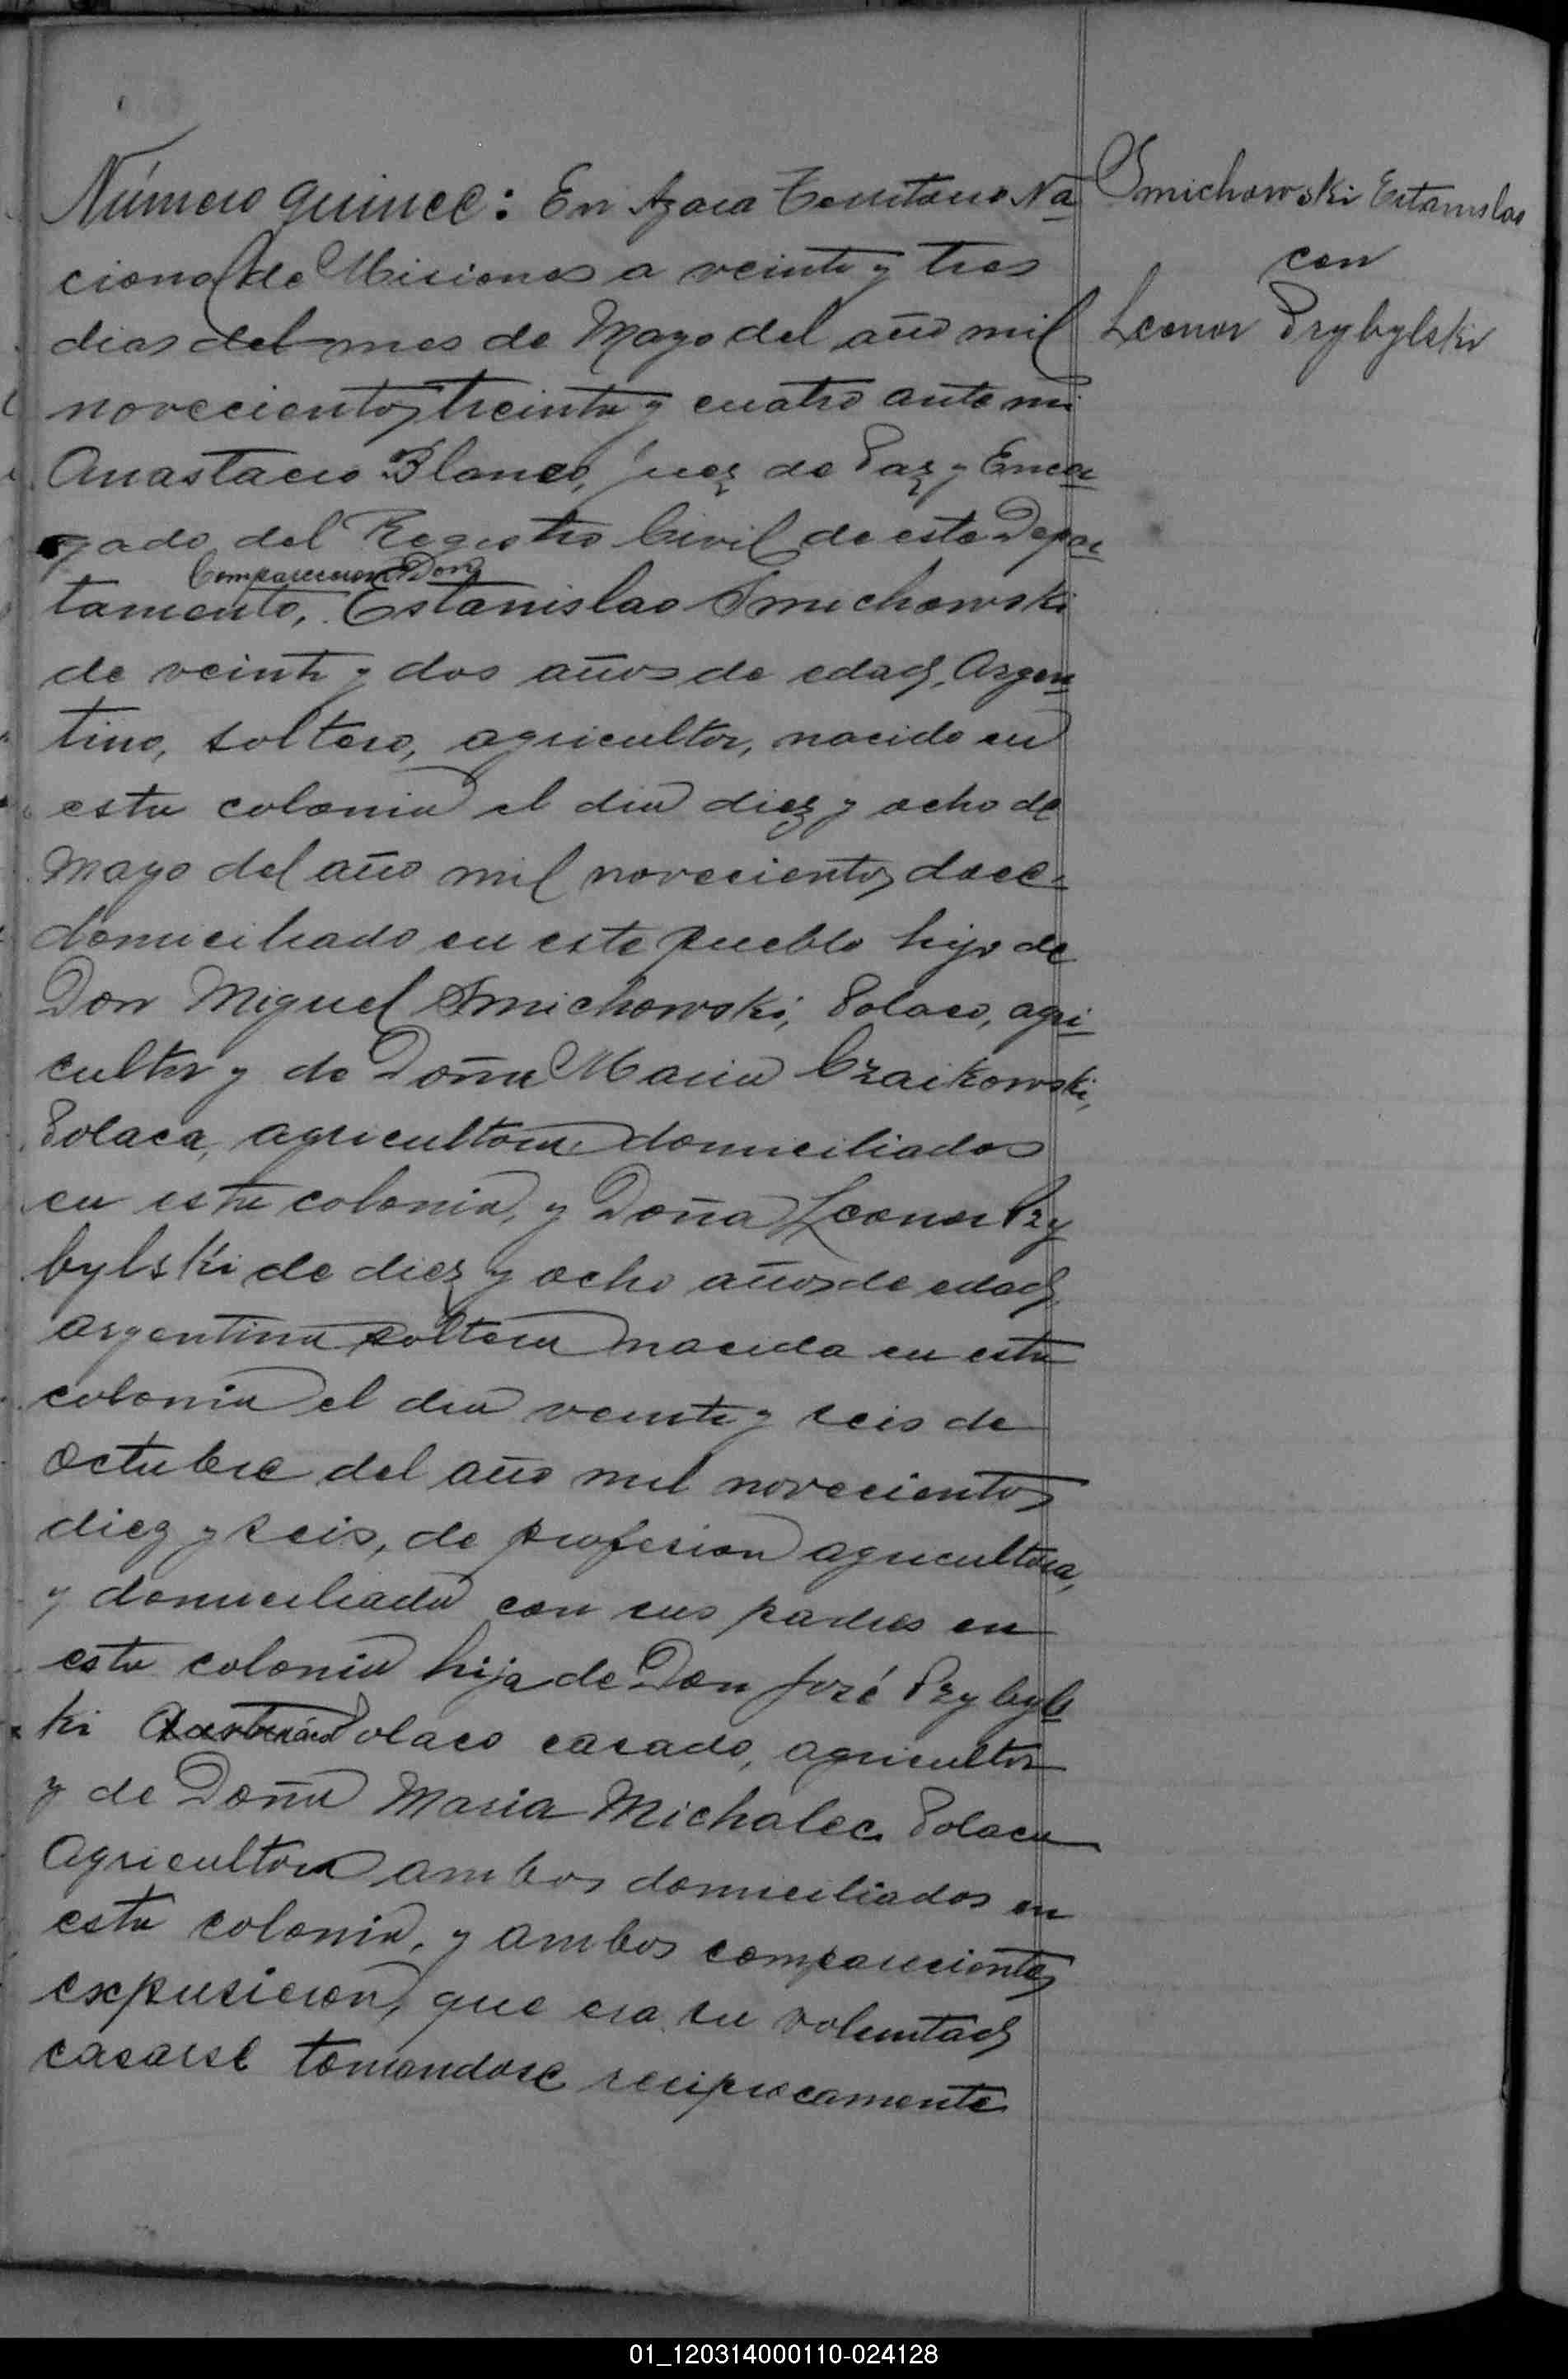 Número quince: En Azara Territorio Na
cional de Misiones a veinte y tres
dias del mes de Mayo del año mil
novecientos treinta y cuatro ante mi
Anastacio Blanco, juez de Paz y Encar
gado del Registro Civil de este Depar
Comparecieron Don
tamento, Estanislao Smichowski
de veinte y dos años de edad, Argen
tino, soltero, agricultor, nacido en
esta colonia el dia diez y ocho de
Mayo del año mil novecientos doce
domiciliado en este pueblo hijo de
Don Miguel Smichowski, Polaco, agri
cultor y de Doña Maria Czaikowski,
Polaca, agricultora domiciliados
en esta colonia, y Doña Leonor Pzy
bylski de diez y ocho años de edad,
argentina soltera nacida en esta
colonia el dia veinte y seis de
Octubre del año mil novecientos
diez y seis, de profesion agricultora,
y domiciliada con sus padres en
esta colonia hija de Don José Pzybyls
ki Polaco casado, agricultor
y de Doña Maria Michalec Polaca
Agricultora ambos domiciliados en
esta colonia, y ambos comparecientes
expusieron, que era su voluntad
casarse tomandose reciprocamente
Smichowski Estanislao
con
Leonor Przybylski
01_120314000110-024128